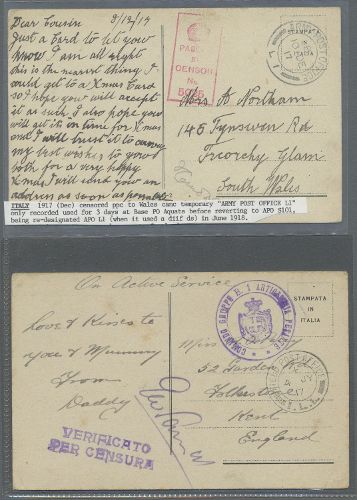 Dear Cousin 8/12/17
Just a Card to let you
know I am all right
this is the nearest thing I
could get to a Xmas Card
so I hope you will accept
it as such. I also hope you
will get it in time for Xmas
and I will trust it to convey
my best wishes to you
both for a very happy
Xmas I will send you an
address as soon as possible
PASSED
BY
CENSOR
No.
STAMPATA
ITALIA
ARMY POST OFFICE
L 1
Mrs A Northam
145 Tynewen Rd
Treorchy Glam
South Wales
ITALY 1917 (Dec) censored ppc to Wales canc temporary "ARMY POST OFFICE L1"
only recorded used for 3 days at Base PO Aquata before reverting to APO S101,
being re-designated APO L1 (when it used a diff ds) in June 1918.
On Active Service
STAMPATA
IN
ITALIA
COMANDO GRUPPO N. 1 ARTIGLIERIA PESANTE
Love & Kisses to
you & Mummy
From
Daddy
Miss
52 Garden
Folkestone
Kent
England
VERIFICATO
PER CENSURA